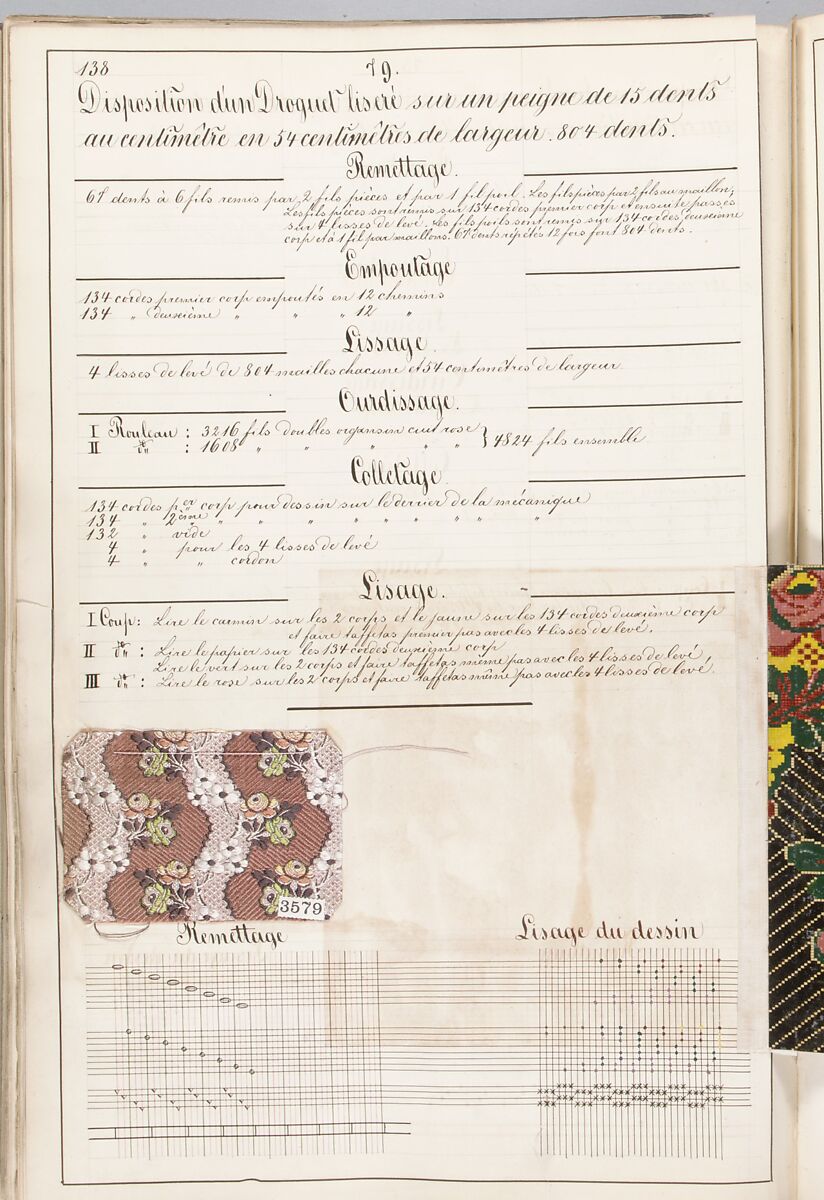 138
79.
Disposition d'un Droguet liseré sur un peigne de 15 dents
au centimètre en 54 centimètres de largeur. 804 dents.
Remettage.
67 dents à 6 fils remis par 2 fils pièces et par 1 fil poil. Les fils pièces par 2 fils au maillon;
Les fils pièces sont remis sur 134 cordes premier corp et ensuite passés
sur 4 lisses de levé. Les fils poils sont remis sur 134 cordes deuxième
corp et à 1 fil par maillons. 67 dents répétés 12 fois font 804 dents.
Empoutage
134 cordes premier corp empoutés en 12 chemins
134 " deuxième " " " 12 "
Lissage.
4 lisses de levé de 804 mailles chacune et 54 centimètres de largeur.
Ourdissage.
I Rouleau : 3216 fils doubles organsin cuit rose } 4824 fils ensemble
II do : 1608 " " " " "
Colletage.
134 cordes per corp pour dessin sur le derrier de la mécanique
134 " 2ème " " " " " " " " "
132 " vide
4 " pour les 4 lisses de levé
4 " " cordon
Lisage.
I Coup: Lire le carmin sur les 2 corps et le jaune sur les 134 cordes deuxième corp
et faire taffetas premier pas avec les 4 lisses de levé.
II do : Lire le papier sur les 134 cordes deuxième corp
Lire le vert sur les 2 corps et faire taffetas même pas avec les 4 lisses de levé,
III do : Lire le rose sur les 2 corps et faire taffetas même pas avec les 4 lisses de levé.
3579
Remettage
Lisage du dessin